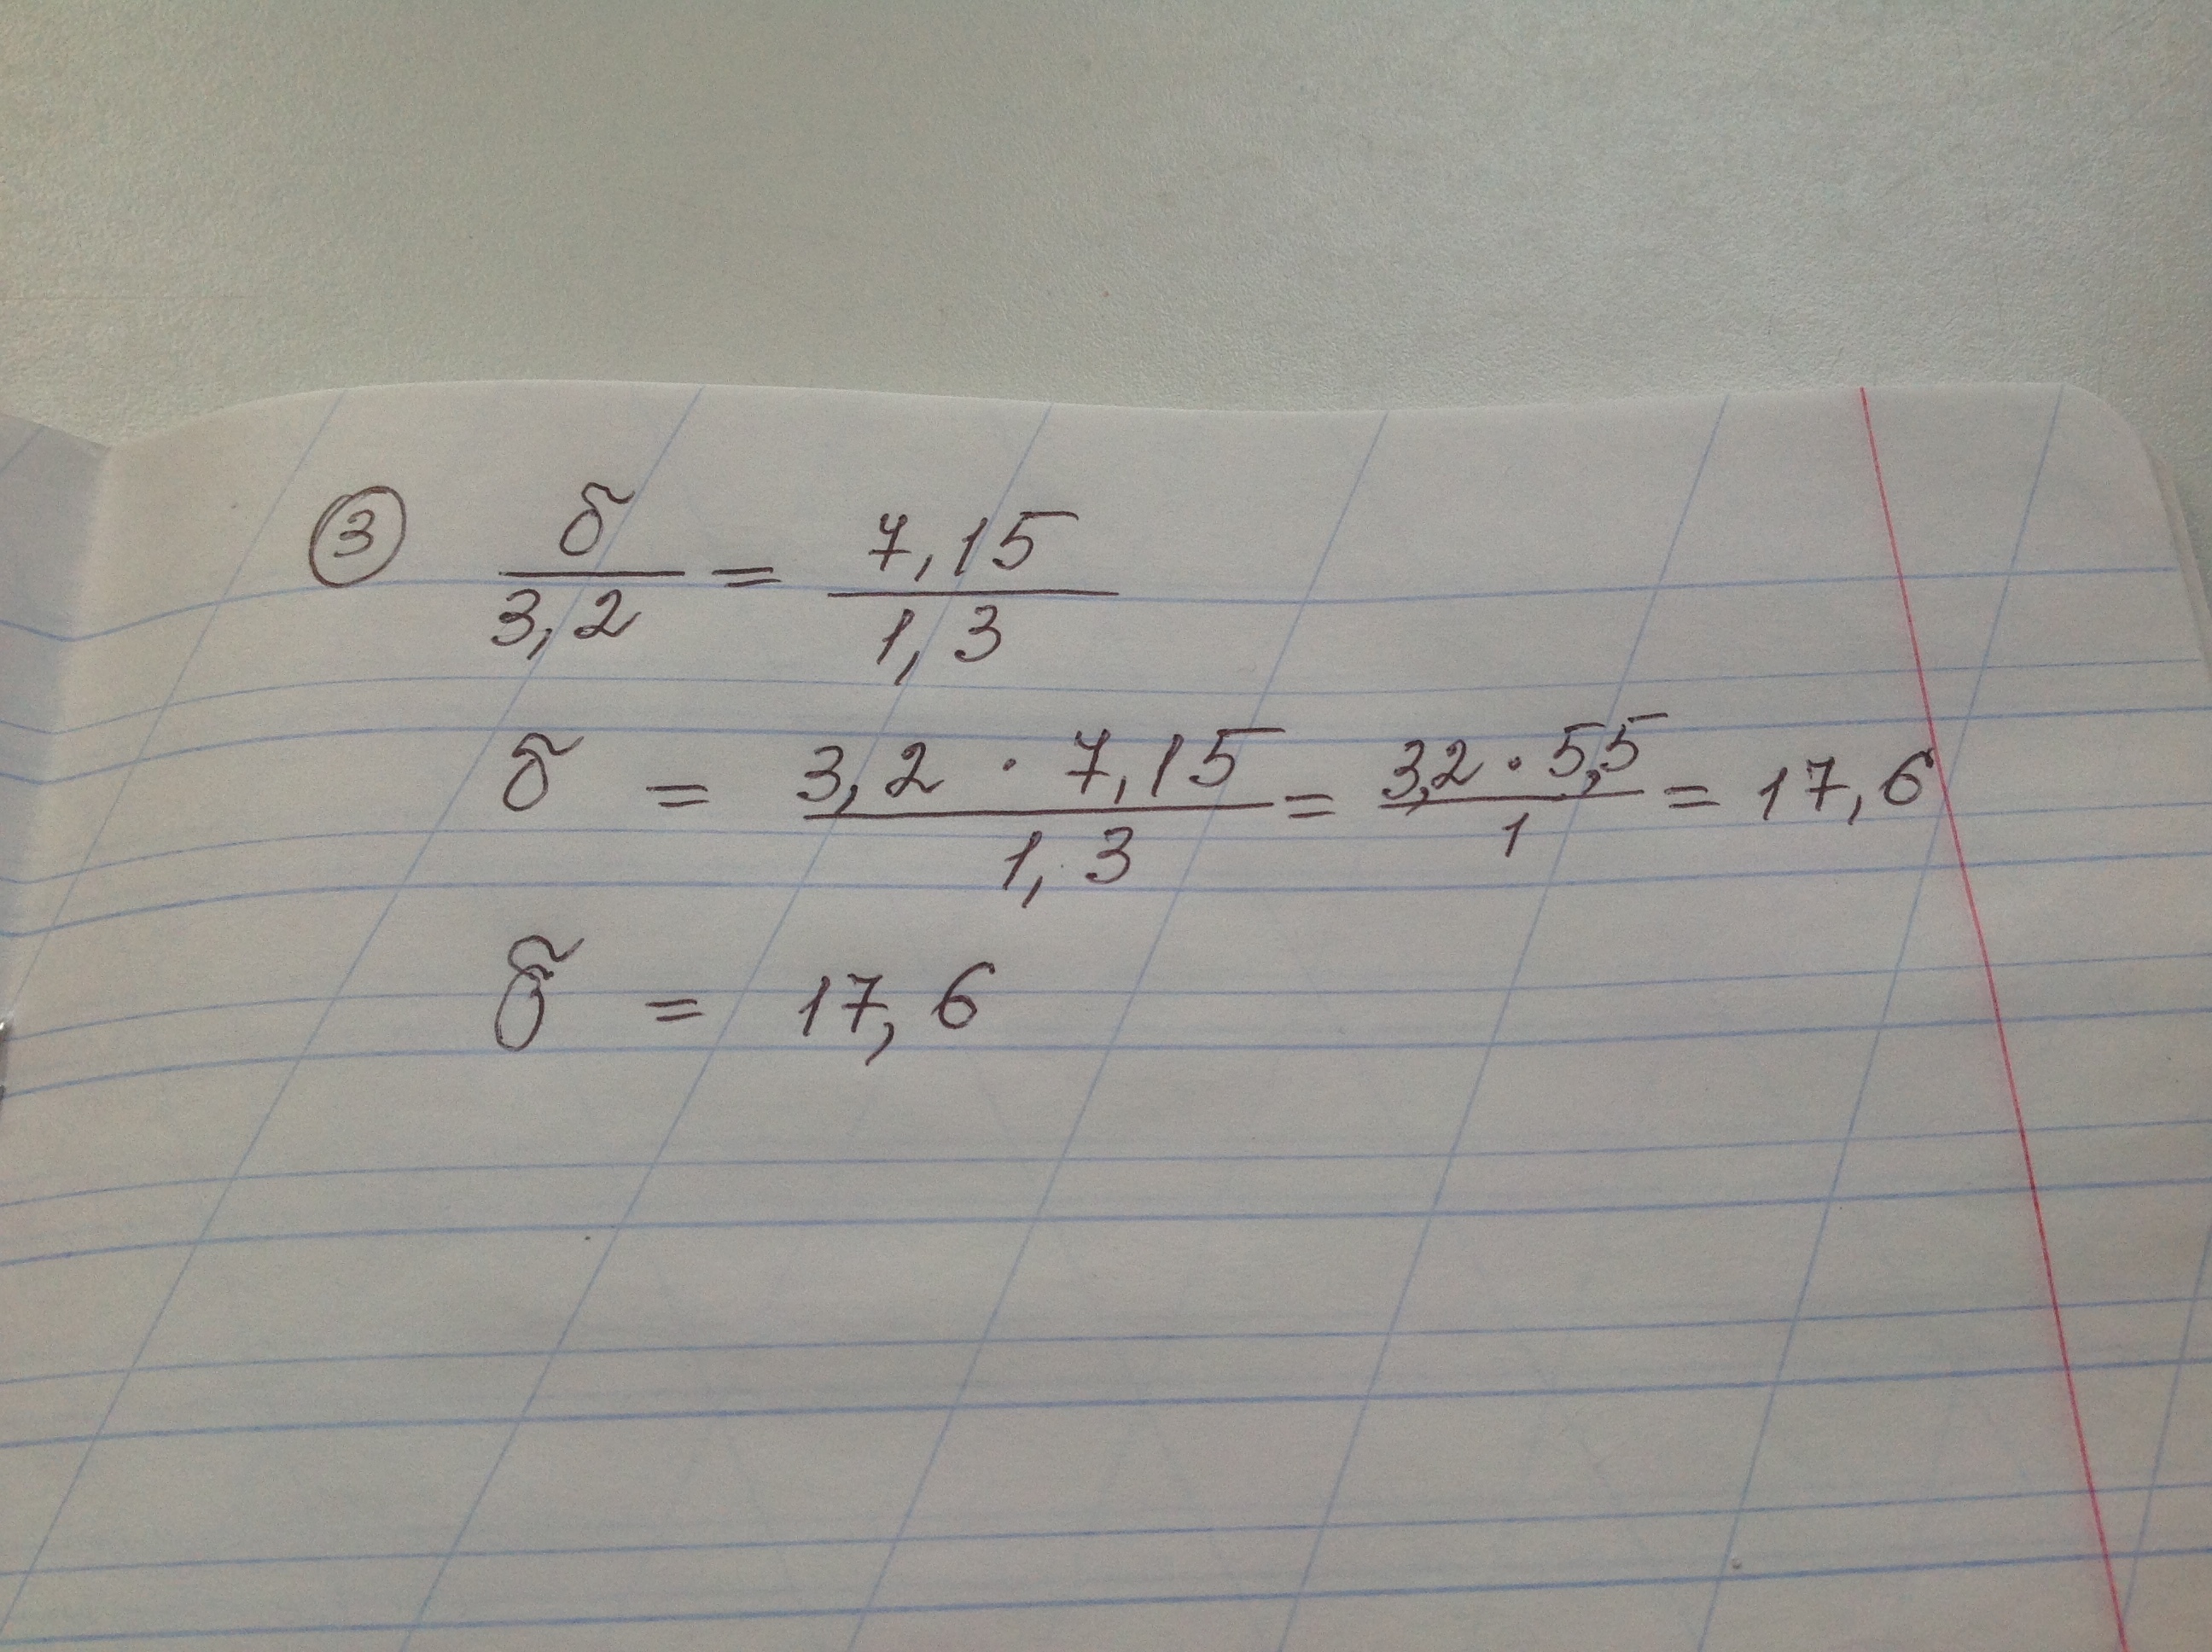 ③ б/3,2 = 7,15/1,3
б = 3,2 · 7,15/1,3 = 3,2 · 5,5/1 = 17,6
б = 17,6